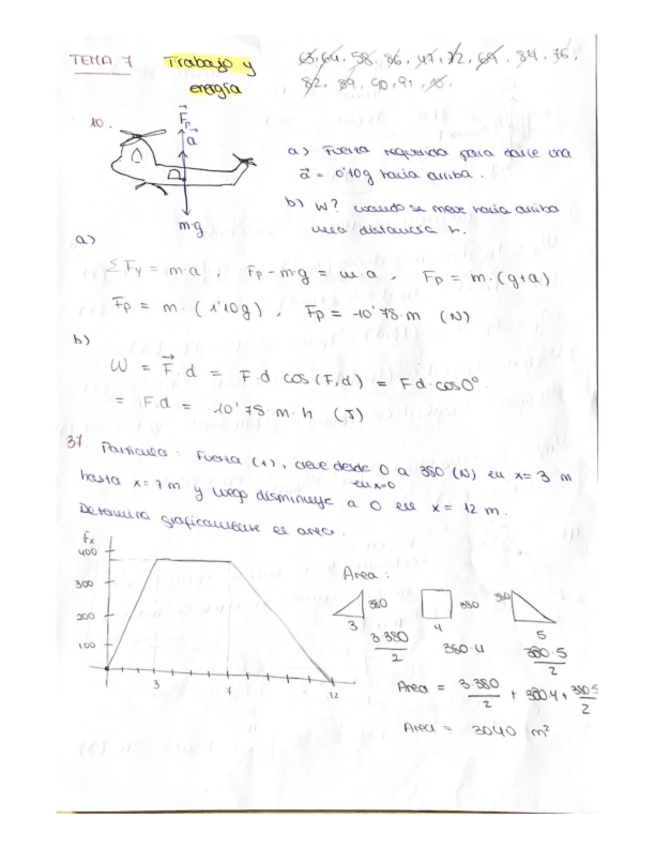 TEMA 7 Trabajo y energía
63, 64, 58, 86, 47, 72, 69, 84, 76,
82, 89, 90, 91, 10.
10.
Fp
a
m·g
a) Fuerza requerida para darle una
a = 0'10g hacia arriba.
b) W? cuando se mueve hacia arriba
una distancia h.
a)
ΣFy = m·a , Fp - m·g = m·a , Fp = m·(g+a)
Fp = m·(1'10g) , Fp = 10'78·m (N)
b)
W = F·d = F·d·cos(F,d) = F·d·cos0º
= F·d = 10'78·m·h (J)
37. Partícula: Fuerza (+), crece desde 0 a 380 (N) en x= 3 m
en x=0
hasta x=7m y luego disminuye a 0 en x = 12 m.
Determina gráficamente el area.
Fx
400
300
200
100
3 7 12
Area:
380 380 380
3 4 5
3·380/2 380·4 380·5/2
Area = 3·380/2 + 380·4 + 380·5/2
Area = 3040 m²